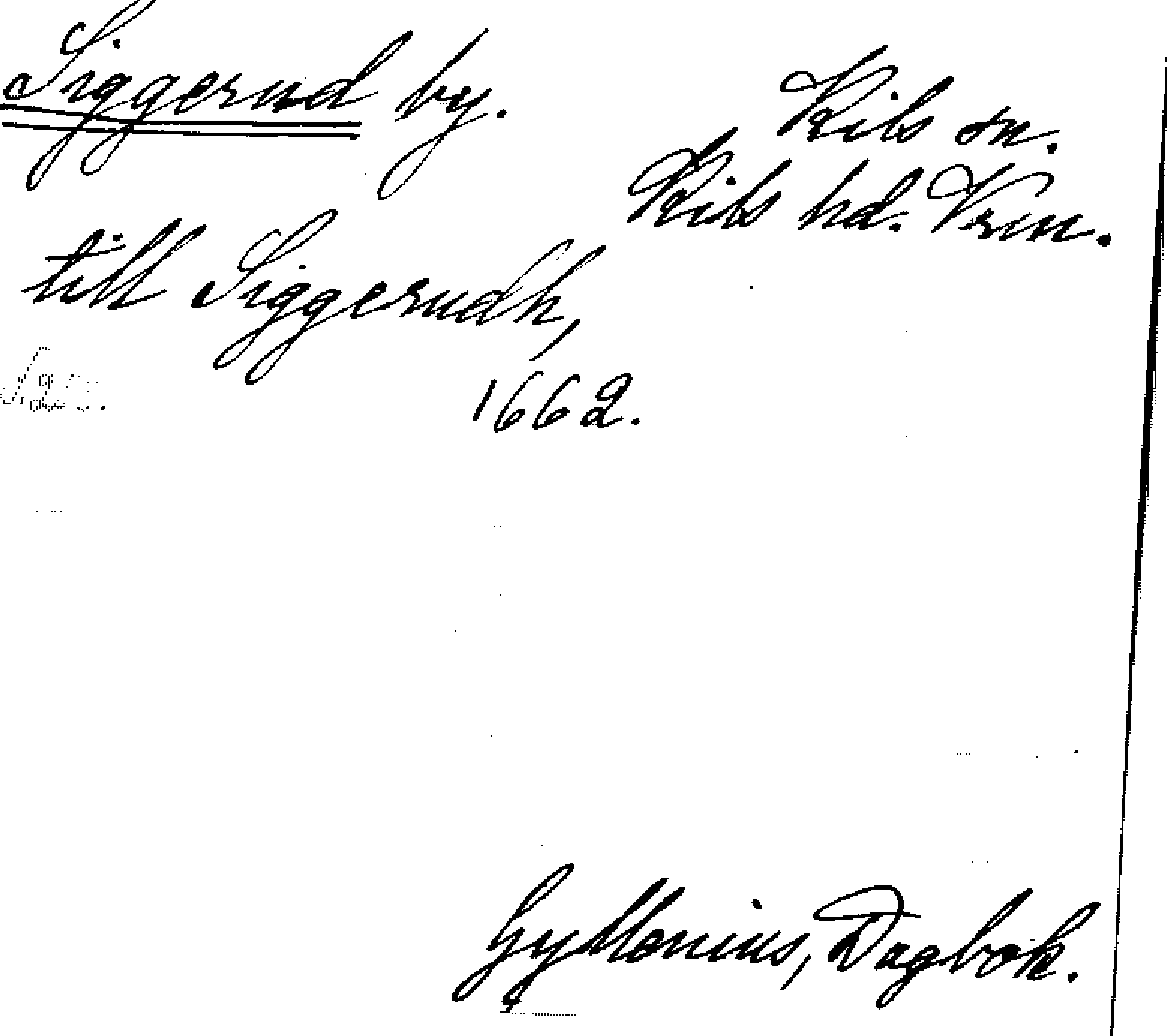 Siggerud by.
Kils sn.
Kils hd. Vrm.
till Siggerudh,
1662.
Gyllenius, Dagbok.